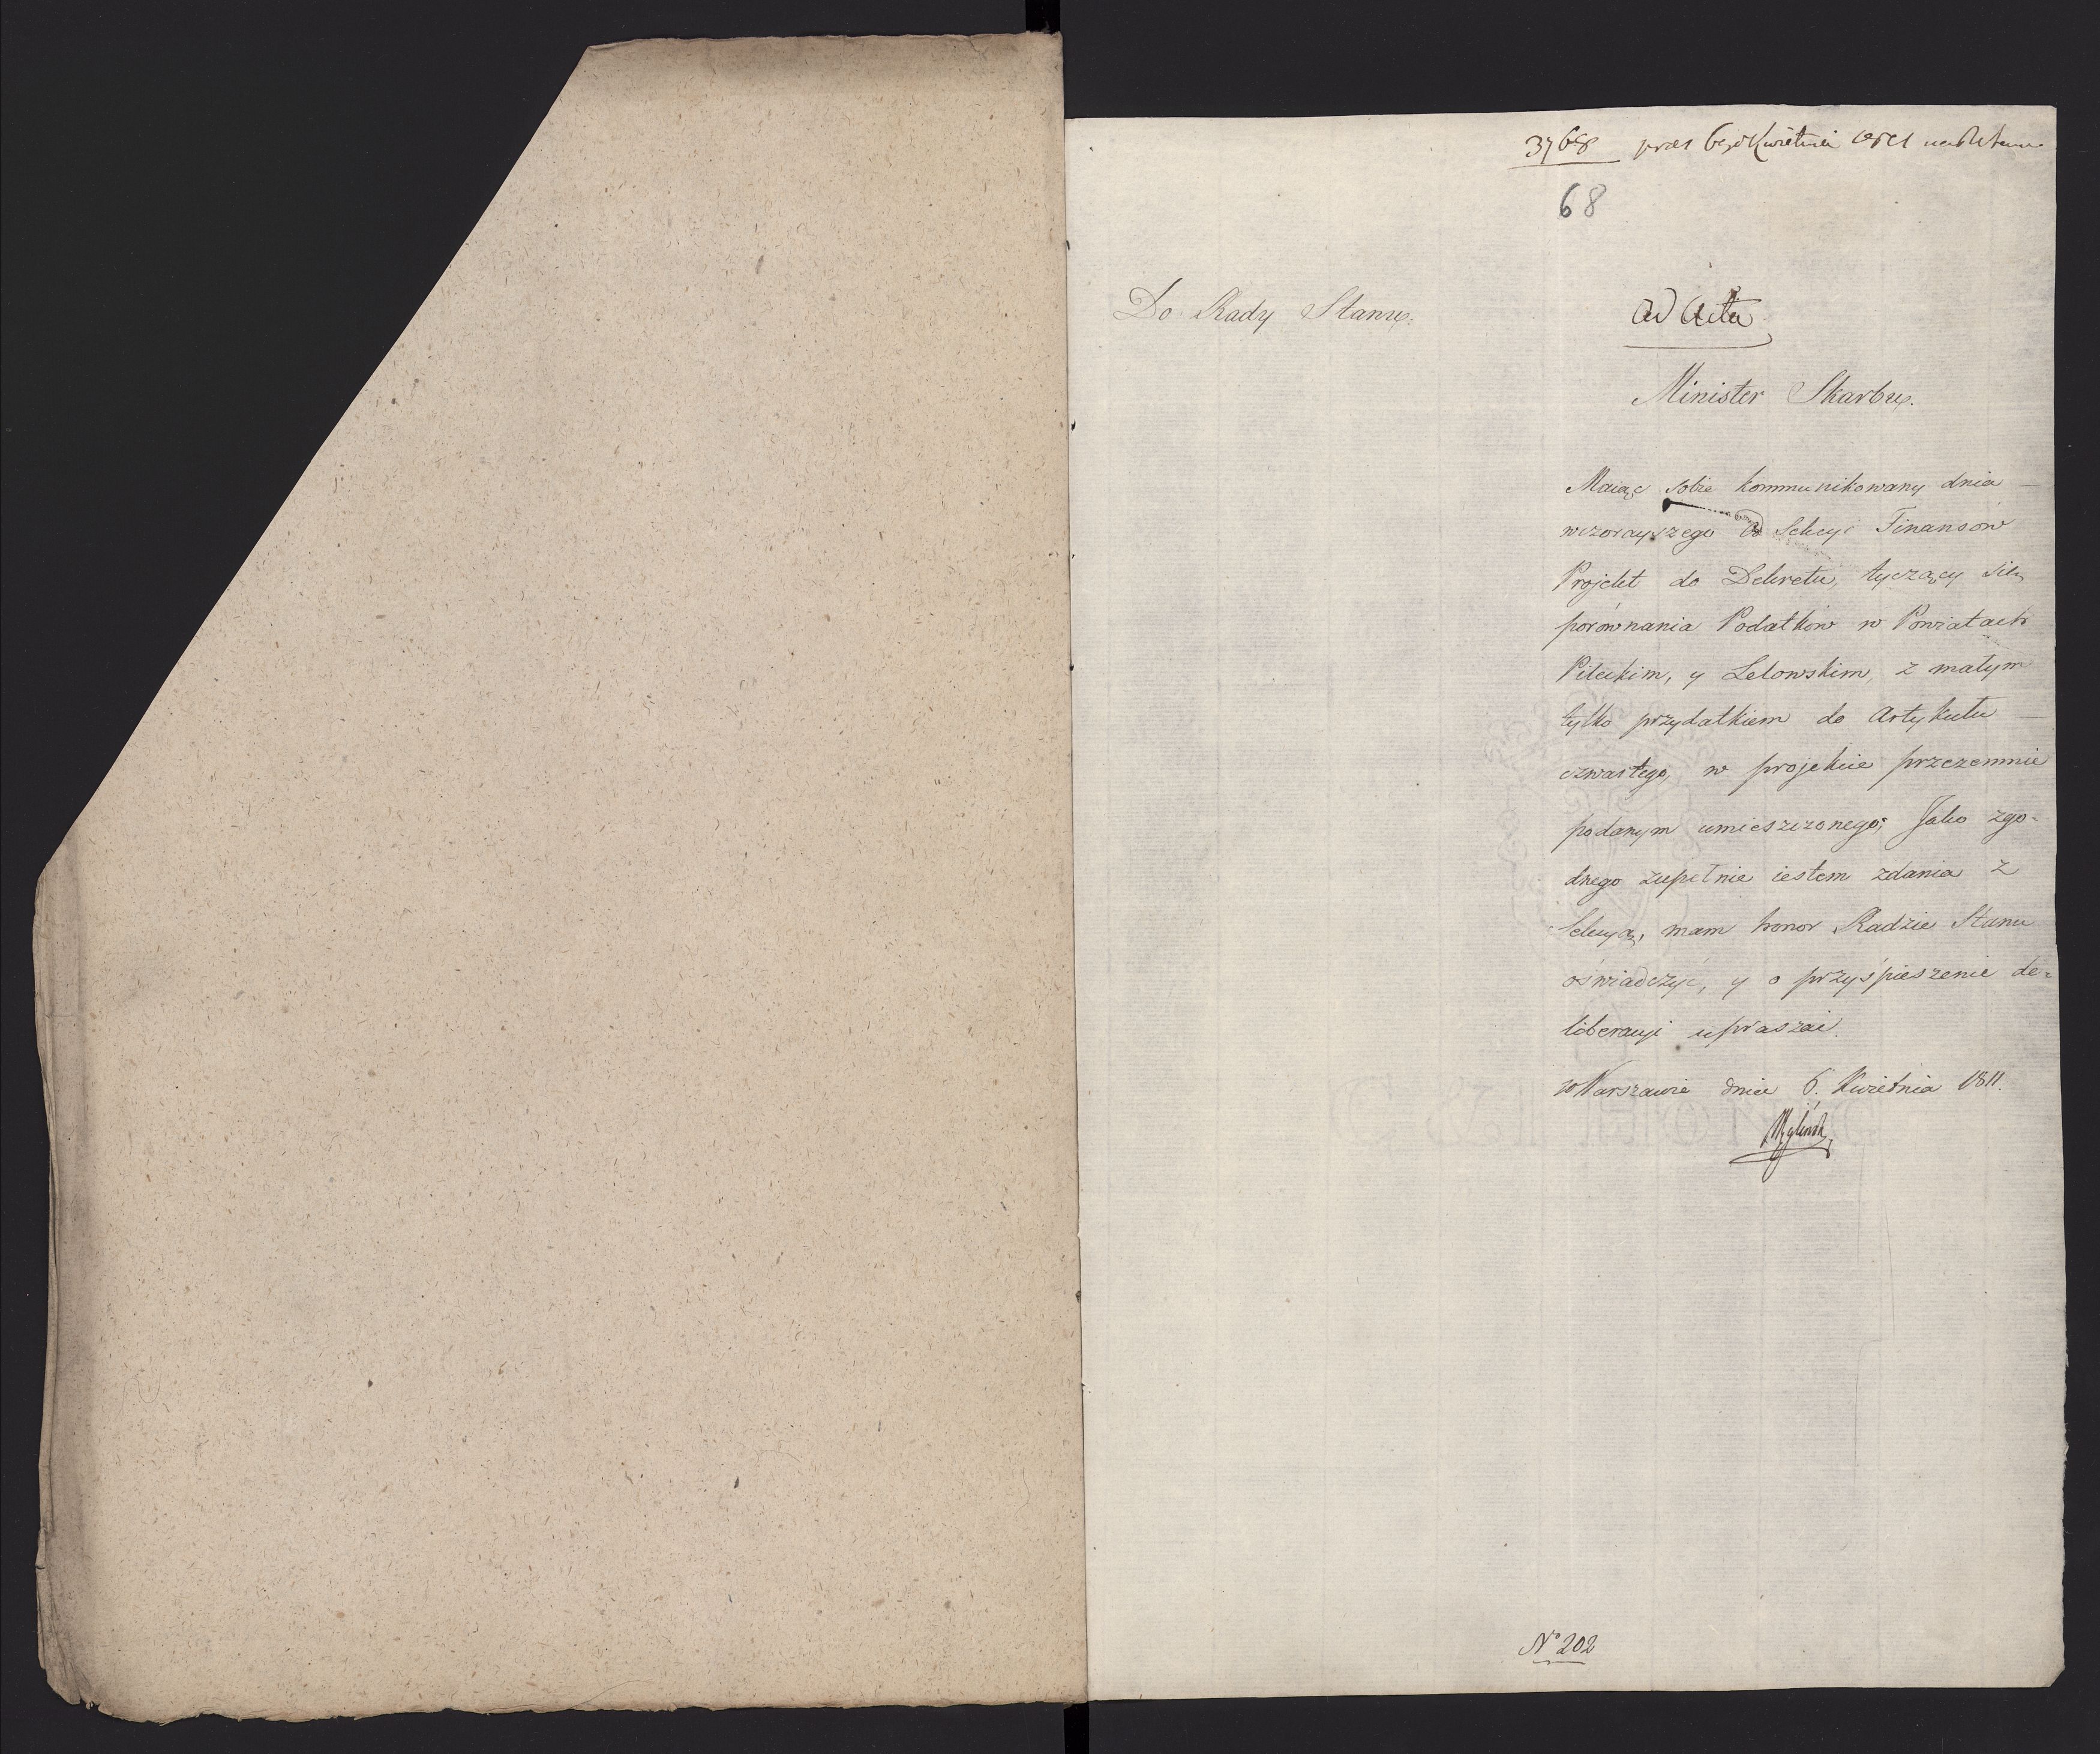 3768 prez 6go Kwietnia 1811
68
Do Rady Stanu.
Ad Acta
Minister Skarbu.
Maiąc sobie kommunikowany dnia
wczorayszego Od Sekcyi Finansów
Projekt do Dekretu, tyczący się
porównania Podatków w Powiatach
Pileckim, y Lelowskim, z małym
tylko przydatkiem do Artykułu
czwartego, w projekcie przezemnie
podanym umieszczonego; Jako zgo=
dnego zupełnie iestem zdania z
Sekcyą, mam honor Radzie Stanu
oświadczyć, y o przyśpieszenie de=
liberacyi upraszać.
w Warszawie dnia 6. Kwietnia 1811.
N° 202